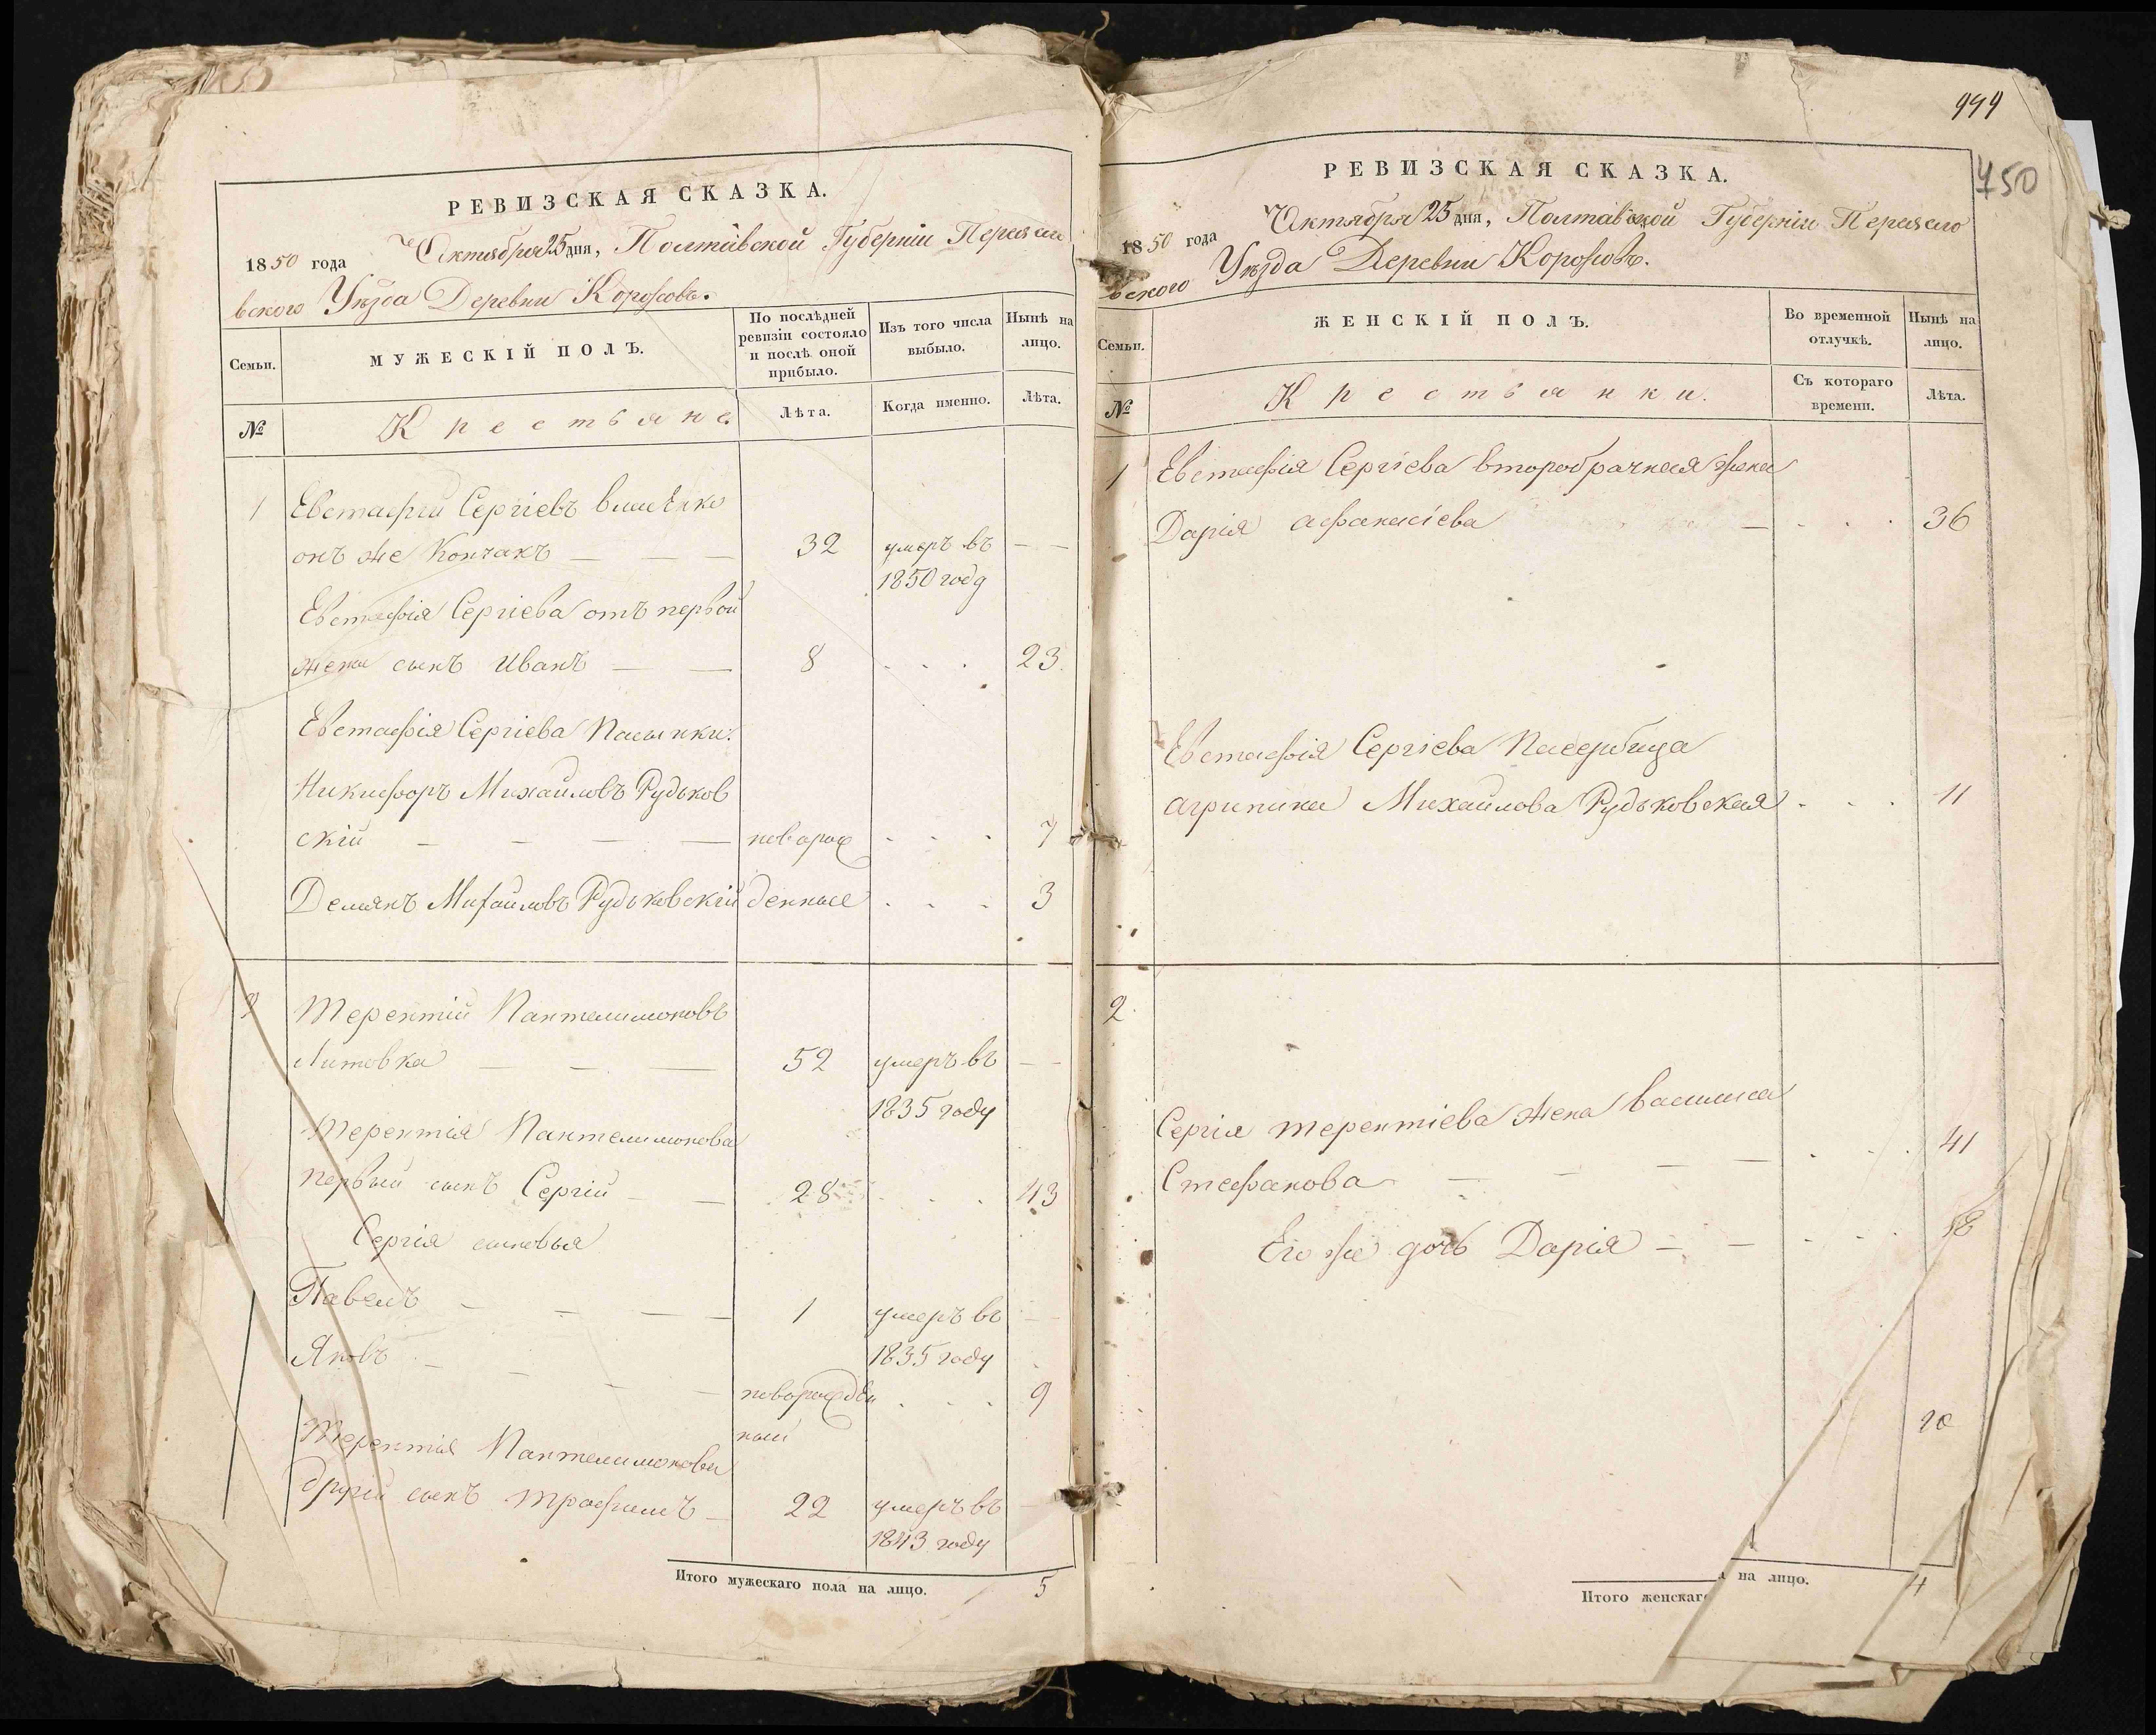 РЕВИЗСКАЯ СКАЗКА.
1850 года Октября 25 дня, Полтавской Губерніи Переясла
вского Уѣзда Деревни Коржовъ.
Семьи.
МУЖЕСКІЙ ПОЛЪ.
По послѣдней ревизіи состояло и послѣ оной прибыло.
Изъ того числа выбыло.
Нынѣ на лицо.
№
Крестьяне.
Лѣта.
Когда именно.
Лѣта.
1 Евстафій Сергіевъ
онъ же Кончакъ — — — 32 умеръ въ — —
1850 году
Евстафія Сергіева отъ первой
жены сынъ Иванъ — — 8 . . . 23.
Евстафія Сергіева Пасынки.
Никифоръ Михайловъ Рудьков
скій — — — — новорож . . . 7
Демянъ Михайловъ Рудьковскій денные . . . 3
2 Терентій Пантелимоновъ
Литовка — — — 52 умеръ въ — —
1835 году
Терентія Пантелимонова
первый сынъ Сергій — — 28 . . . 43
Сергія сыновья
Павелъ — — — — 1 умеръ въ —
1835 году
Яковъ — — — — новорожден . . . 9
ный
Терентія Пантелимонова
другій сынъ Трофимъ — 22 умеръ въ —
1843 году
Итого мужескаго пола на лицо. 5
999
750
РЕВИЗСКАЯ СКАЗКА.
1850 года Октября 25 дня, Полтавской Губерніи Переясла
вского Уѣзда Деревни Коржовъ.
Семьи.
ЖЕНСКІЙ ПОЛЪ.
Во временной отлучкѣ.
Нынѣ на лицо.
№
Крестьянки.
Съ котораго времени.
Лѣта.
1 Евстафія Сергіева второбрачная жена
Дарія Афанасіева — . . . 36
Евстафія Сергіева Пасербица
Агрипина Михайлова Рудьковская . . . 11
2.
Сергія Терентіева жена Василиса
Стефанова — — — — . . . 41
Его же дочь Дарія — — . . . 18
Итого женскаг
а на лицо. 4